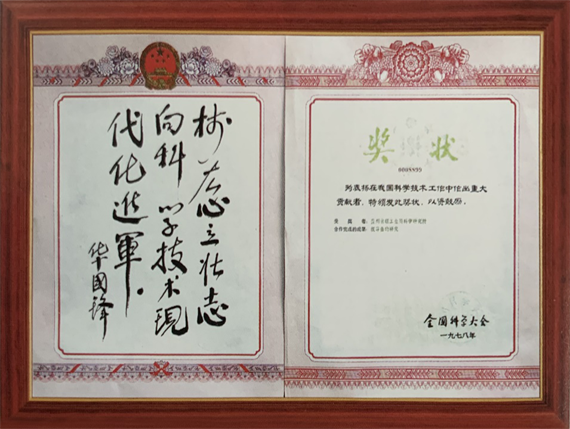 树雄心立壮志
向科学技术现
代化进軍。
华国锋
奖状
0008895
为表扬在我国科学技术工作中作出重大
贡献者，特颁发此奖状，以资鼓励。
受奖者：
合作完成的成果：
全国科学大会
一九七八年